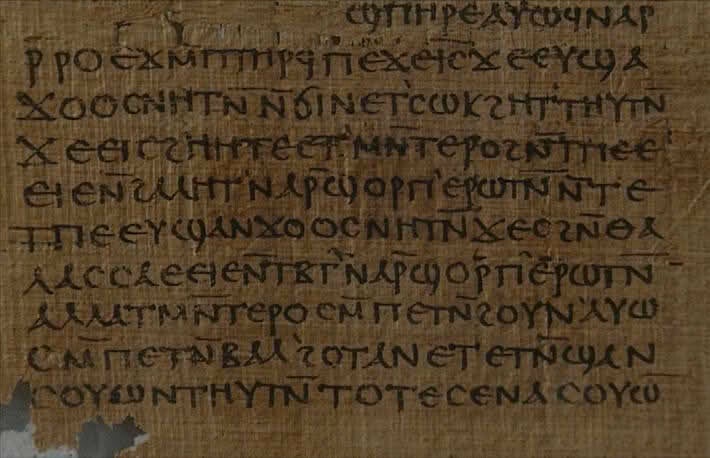 ϣⲡⲏⲣⲉⲁⲩⲱϥⲛⲁⲣ
ⲣ̄ⲣⲟⲉϫⲙⲡⲧⲏⲣϥⲡⲉϫⲉⲓ̅ⲥ̅ϫⲉⲉⲩϣⲁ
ϫⲟⲟⲥⲛⲏⲧⲛ̄ⲛ̄ϭⲓⲛⲉⲧ'ⲥⲱⲕϩⲏⲧ'ⲧⲏⲩⲧⲛ̄
ϫⲉⲉⲓⲥϩⲏⲏⲧⲉⲉⲧ'ⲙⲛ̄ⲧⲉⲣⲟϩⲛ̄ⲧⲡⲉⲉ
ⲉⲓⲉⲛ̄ϩⲁⲗⲏⲧ'ⲛⲁⲣ̄ϣⲟⲣⲡ'ⲉⲣⲱⲧⲛ̄ⲛ̄ⲧⲉ
ⲧⲡⲉⲉⲩϣⲁⲛϫⲟⲟⲥⲛⲏⲧⲛ̄ϫⲉⲥϩⲛ̄ⲑⲁ
ⲗⲁⲥⲥⲁⲉⲉⲓⲉⲛ̄ⲧⲃⲧ'ⲛⲁⲣ̄ϣⲟⲣⲡ'ⲉⲣⲱⲧⲛ̄
ⲁⲗⲗⲁⲧⲙⲛ̄ⲧⲉⲣⲟⲥⲙ̄ⲡⲉⲧⲛ̄ϩⲟⲩⲛ'ⲁⲩⲱ
ⲥⲙ̄ⲡⲉⲧⲛ̄ⲃⲁⲗ'ϩⲟⲧⲁⲛⲉⲧⲉⲧⲛ̄ϣⲁⲛ
ⲥⲟⲩⲱⲛⲧⲏⲩⲧⲛ̄ⲧⲟⲧⲉⲥⲉⲛⲁⲥⲟⲩⲱ